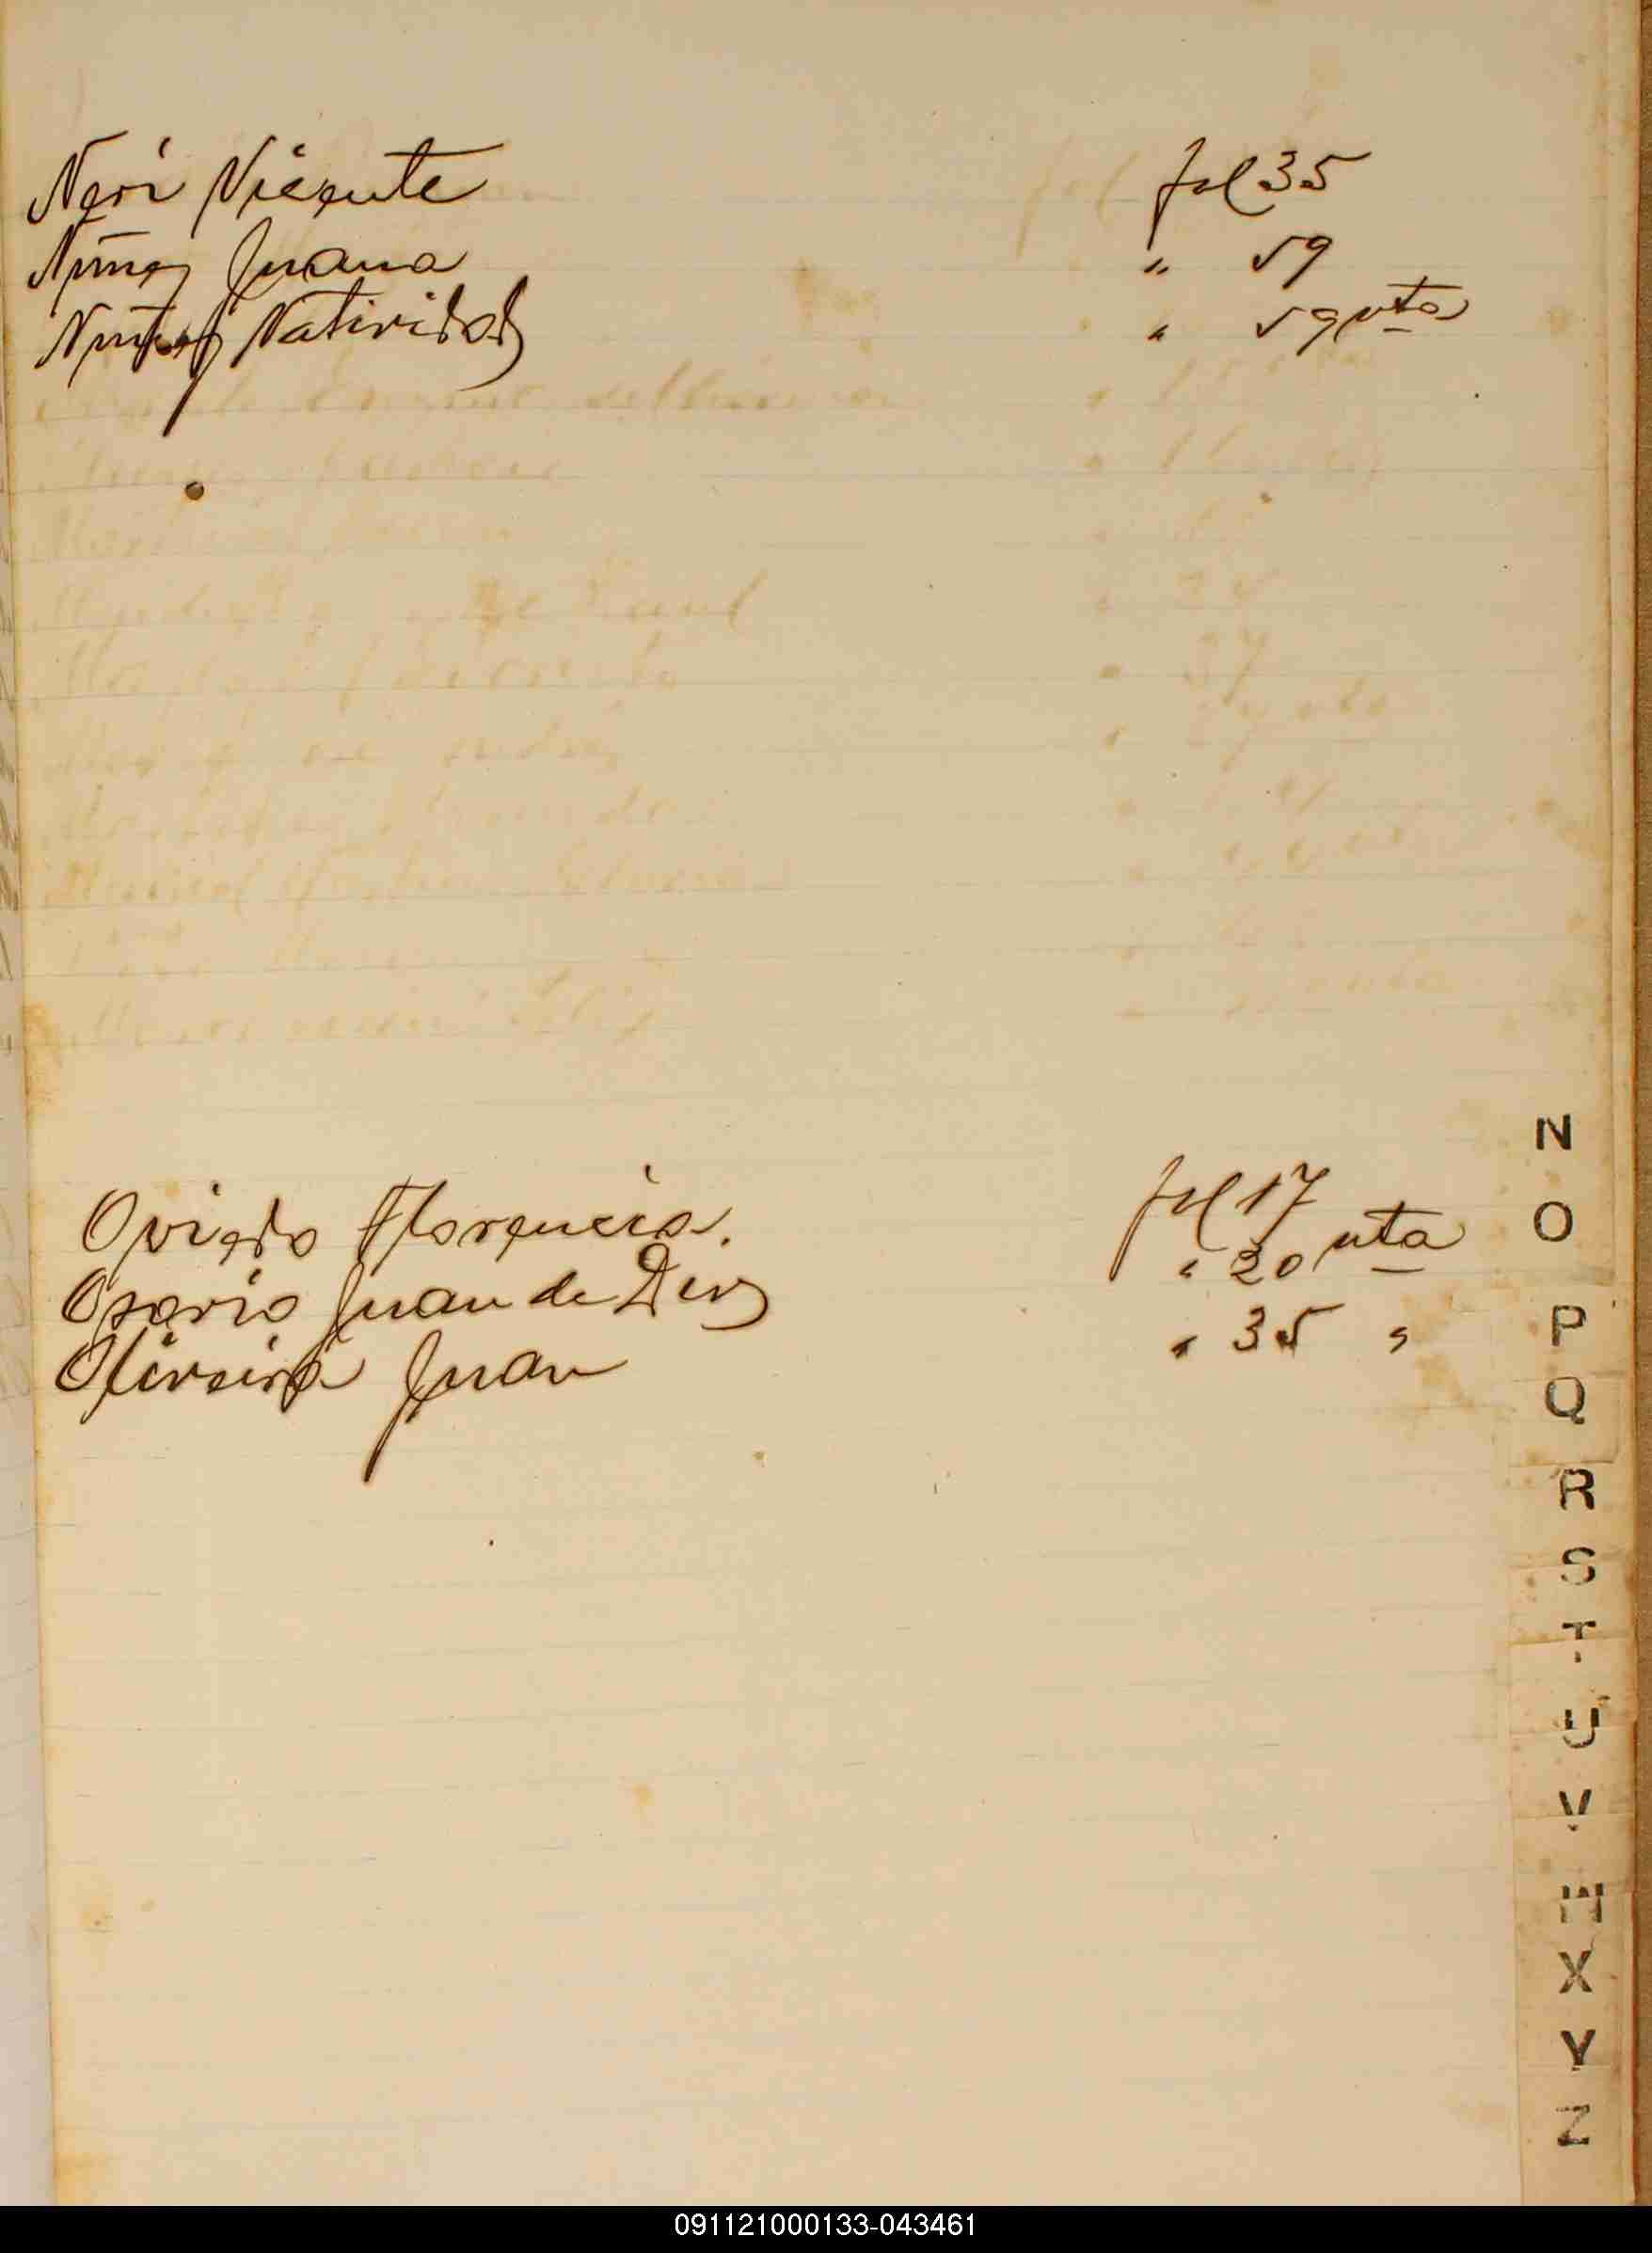 Neri Vicente fol 35
Nuñez Juana " 59
Nuñez Natividad " 59 vta
Oviedo Florencia. fol 17
Osorio Juan de Dios " 20 vta
Oliveira Juan " 35 "
N
O
P
Q
R
S
T
U
V
W
X
Y
Z
091121000133-043461